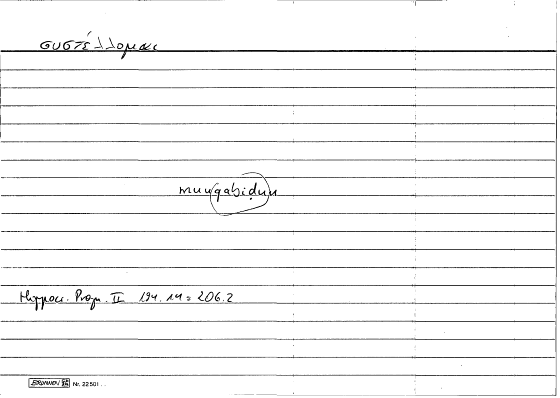 συστέλλομαι
munqabiḍun
Hippocr. Progn. II 194.14 = 206.2
BRUNNEN Nr. 22501